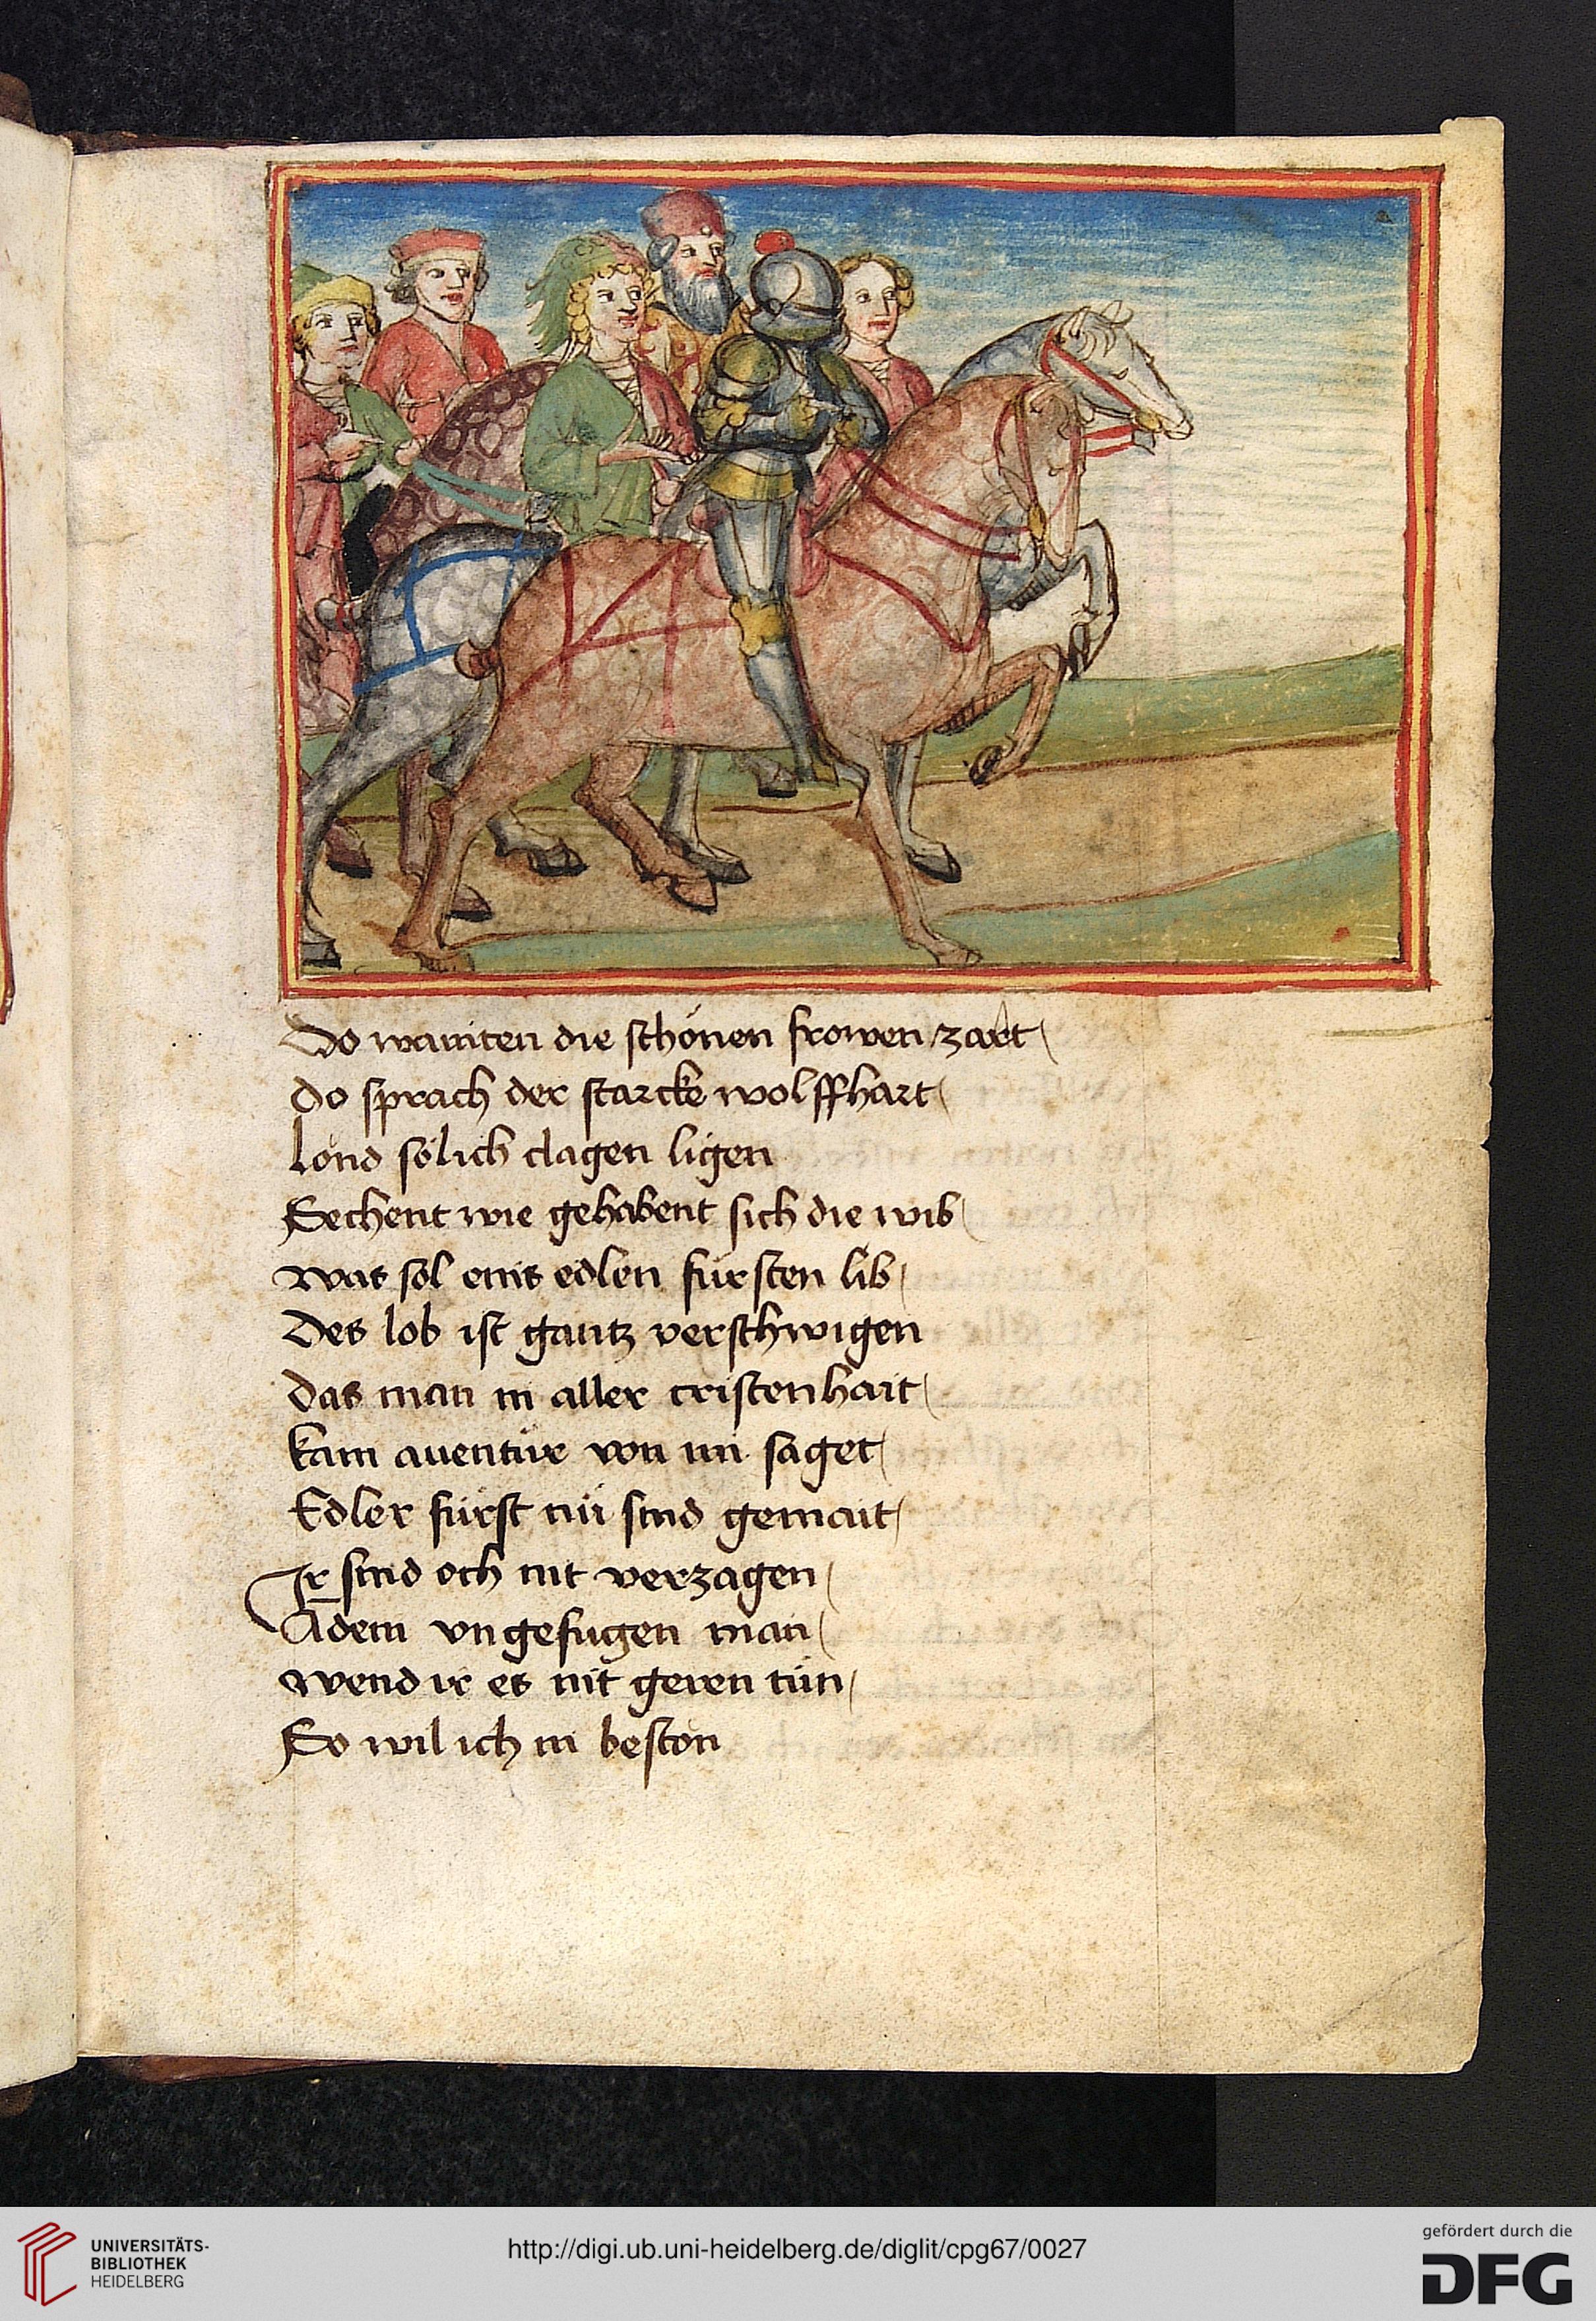 Do wainten die schönen frowen zart
do sprach der starcke wolffhart
lond sölich clagen ligen
Sechent wie gehabent sich die wib
was sol eins edlen fürsten lib
Des lob ist gantz verschwigen
das man in aller cristenhait
kam auentür von im saget
Edler fürst nü sind gemait
Ir sind och nit verzagen
Adem vngefügen man
wend ir es nit geren tün
So wil ich in beston
UNIVERSITÄTS-
BIBLIOTHEK
HEIDELBERG
http://digi.ub.uni-heidelberg.de/diglit/cpg67/0027
gefördert durch die
DFG